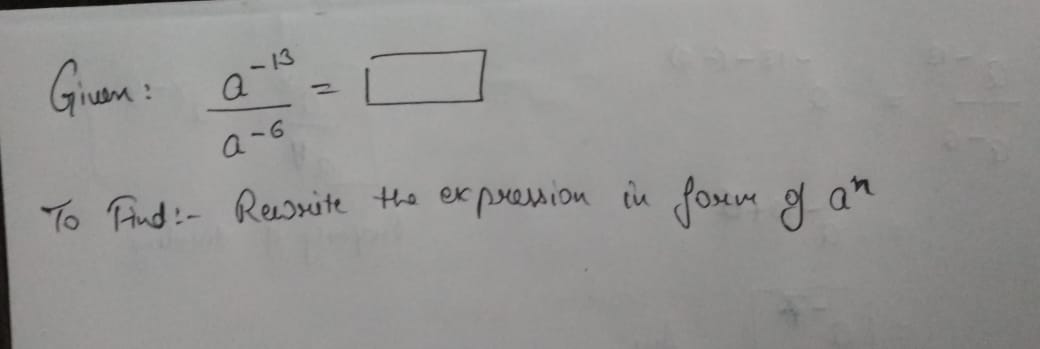 Given: a^-13 / a^-6 = □
To Find:- Rewrite the expression in form of a^n